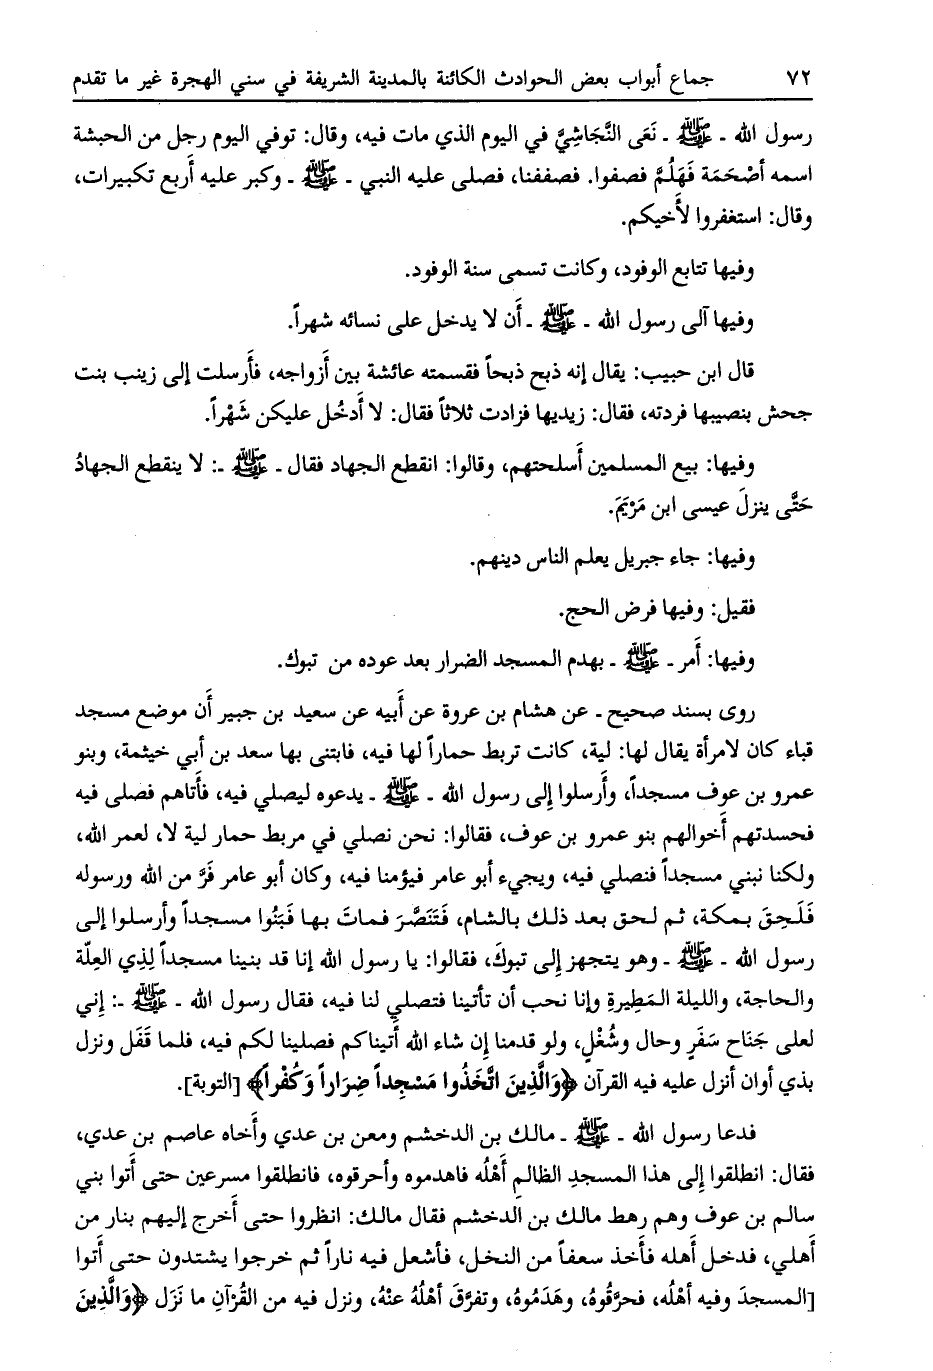 ٧٢ جماع أبواب بعض الحوادث الكائنة بالمدينة الشريفة في سني الهجرة غير ما تقدم
رسول الله ـ ﷺ ـ نَعَى النَّجَاشِيَّ في اليوم الذي مات فيه، وقال: توفي اليوم رجل من الحبشة
اسمه أصْحَمَة فَهَلُمَّ فصفوا. فصففنا، فصلى عليه النبي ـ ﷺ ـ وكبر عليه أربع تكبيرات،
وقال: استغفروا لأخيكم.
وفيها تتابع الوفود، وكانت تسمى سنة الوفود.
وفيها آلى رسول الله ـ ﷺ ـ أن لا يدخل على نسائه شهراً.
قال ابن حبيب: يقال إنه ذبح ذبحاً فقسمته عائشة بين أزواجه، فأرسلت إلى زينب بنت
جحش بنصيبها فردته، فقال: زيديها فزادت ثلاثاً فقال: لا أدخُل عليكن شَهْراً.
وفيها: بيع المسلمين أسلحتهم، وقالوا: انقطع الجهاد فقال ـ ﷺ ـ: لا ينقطع الجهادُ
حَتَّى ينزلَ عيسى ابن مَرْيَمَ.
وفيها: جاء جبريل يعلم الناس دينهم.
فقيل: وفيها فرض الحج.
وفيها: أمر ـ ﷺ ـ بهدم المسجد الضرار بعد عوده من تبوك.
روى بسند صحيح ـ عن هشام بن عروة عن أبيه عن سعيد بن جبير أن موضع مسجد
قباء كان لامرأة يقال لها: لية، كانت تربط حماراً لها فيه، فابتنى بها سعد بن أبي خيثمة، وبنو
عمرو بن عوف مسجداً، وأرسلوا إلى رسول الله ـ ﷺ ـ يدعوه ليصلي فيه، فأتاهم فصلى فيه
فحسدتهم أخوالهم بنو عمرو بن عوف، فقالوا: نحن نصلي في مربط حمار لية لا، لعمر الله،
ولكنا نبني مسجداً فنصلي فيه، ويجيء أبو عامر فيؤمنا فيه، وكان أبو عامر فَرَّ من الله ورسوله
فَلَحِقَ بمكة، ثم لحق بعد ذلك بالشام، فَتَنَصَّرَ فماتَ بها فَبَنُوا مسجداً وأرسلوا إلى
رسول الله ـ ﷺ ـ وهو يتجهز إلى تبوكَ، فقالوا: يا رسول الله إنا قد بنينا مسجداً لِذِي العِلّة
والحاجة، والليلة المَطِيرةِ وإنا نحب أن تأتينا فتصلي لنا فيه، فقال رسول الله ـ ﷺ ـ: إني
لعلى جَنَاح سَفَرٍ وحال وشُغْلٍ، ولو قدمنا إن شاء الله أتيناكم فصلينا لكم فيه، فلما قَفَل ونزل
بذي أوان أنزل عليه فيه القرآن ﴿وَالَّذِينَ اتَّخَذُوا مَسْجِداً ضِرَاراً وَكُفْراً﴾ [التوبة].
فدعا رسول الله ـ ﷺ ـ مالك بن الدخشم ومعن بن عدي وأخاه عاصم بن عدي،
فقال: انطلقوا إلى هذا المسجدِ الظالمِ أهْلُه فاهدموه وأحرقوه، فانطلقوا مسرعين حتى أتوا بني
سالم بن عوف وهم رهط مالك بن الدخشم فقال مالك: انظروا حتى أخرج إليهم بنار من
أهلي، فدخل أهله فأخذ سعفاً من النخل، فأشعل فيه ناراً ثم خرجوا يشتدون حتى أتوا
[المسجدَ وفيه أهْلُه، فحرَّقُوهُ، وهَدَمُوهُ، وتفرَّقَ أهْلُهُ عنْهُ، ونزل فيه من القُرْآنِ ما نَزَل ﴿وَالَّذِينَ